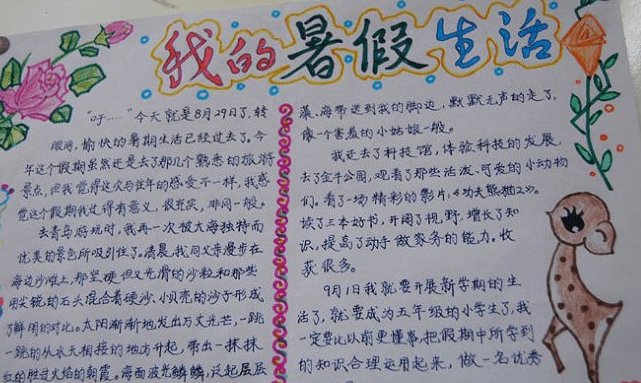 我的暑假生活
“吁……”今天就是8月29日了,转
眼间,愉快的暑期生活已经过去了。今
年这个假期虽然还是去了那几个熟悉的旅游
景点,但我觉得这次与往年的感受不一样,我感
觉这个假期我过得有意义,很充实,非同一般。
去青岛游玩时,我再一次被大海独特而
优美的景色所吸引住了。清晨,我同父亲漫步在
海边沙滩上,那坚硬但又光滑的沙粒和那些
用尖锐的石头混合着硬沙、小贝壳的沙子形成
了鲜明的对比。太阳渐渐地发出万丈光芒,一跳
一跳的从水天相接的地方升起,带出一抹抹
红的胜过火焰的朝霞。海面波光粼粼,泛起层层
藻、海带送到我的脚边,默默无声的走了,
像个害羞的小姑娘一般。
我还去了科技馆,体验科技的发展,
去了金牛公园,观看了那些活泼、可爱的小动物
们。看了一场精彩的影片,《功夫熊猫2》。
读了三本好书,开阔了视野,增长了知
识,提高了动手做家务的能力。收
获很多。
9月1日我就要开展新学期的生
活了,就要成为五年级的小学生了,我
一定要比以前更懂事,把假期中所学到
的知识合理运用起来,做一名优秀